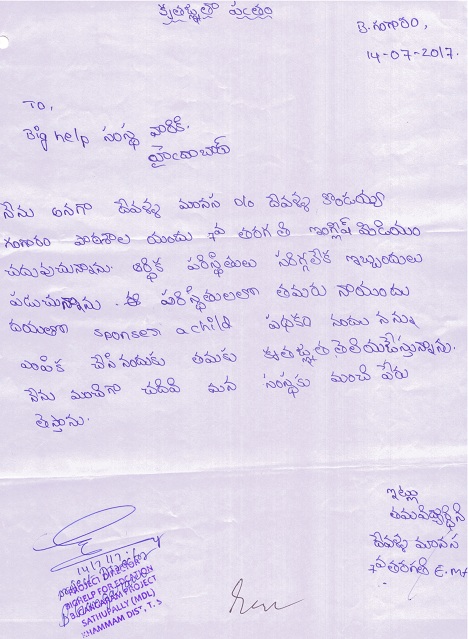 కృతజ్ఞతా పత్రం
B.గంగారం,
14-07-2017.
To,
Big help సంస్థ వారికి.
హైదరాబాద్
నేను అనగా దేవళ్ళ మానస D/o దేవళ్ళ కొండయ్య
గంగారం పాఠశాల యందు 7వ తరగతి ఇంగ్లీష్ మీడియం
చదువుచున్నాను. ఆర్థిక పరిస్థితులు సరిగ్గలేక ఇబ్బందులు
పడుచున్నాను. ఈ పరిస్థితులలో తమరు నాయందు
దయతో sponser a child పథకం నందు నన్ను
ఎంపిక చేసినందుకు తమకు కృతజ్ఞత తెలియజేస్తున్నాను.
నేను మంచిగా చదివి మన సంస్థకు మంచి పేరు
తెస్తాను.
ఇట్లు
తమ విద్యార్థిని
దేవళ్ళ మానస
7వ తరగతి E.M
14/7/17
PROJECT DIRECTOR
BIGHELP FOR EDUCATION
B.GANGARAM PROJECT
SATHUPALLY (MDL)
KHAMMAM DIST, T.S